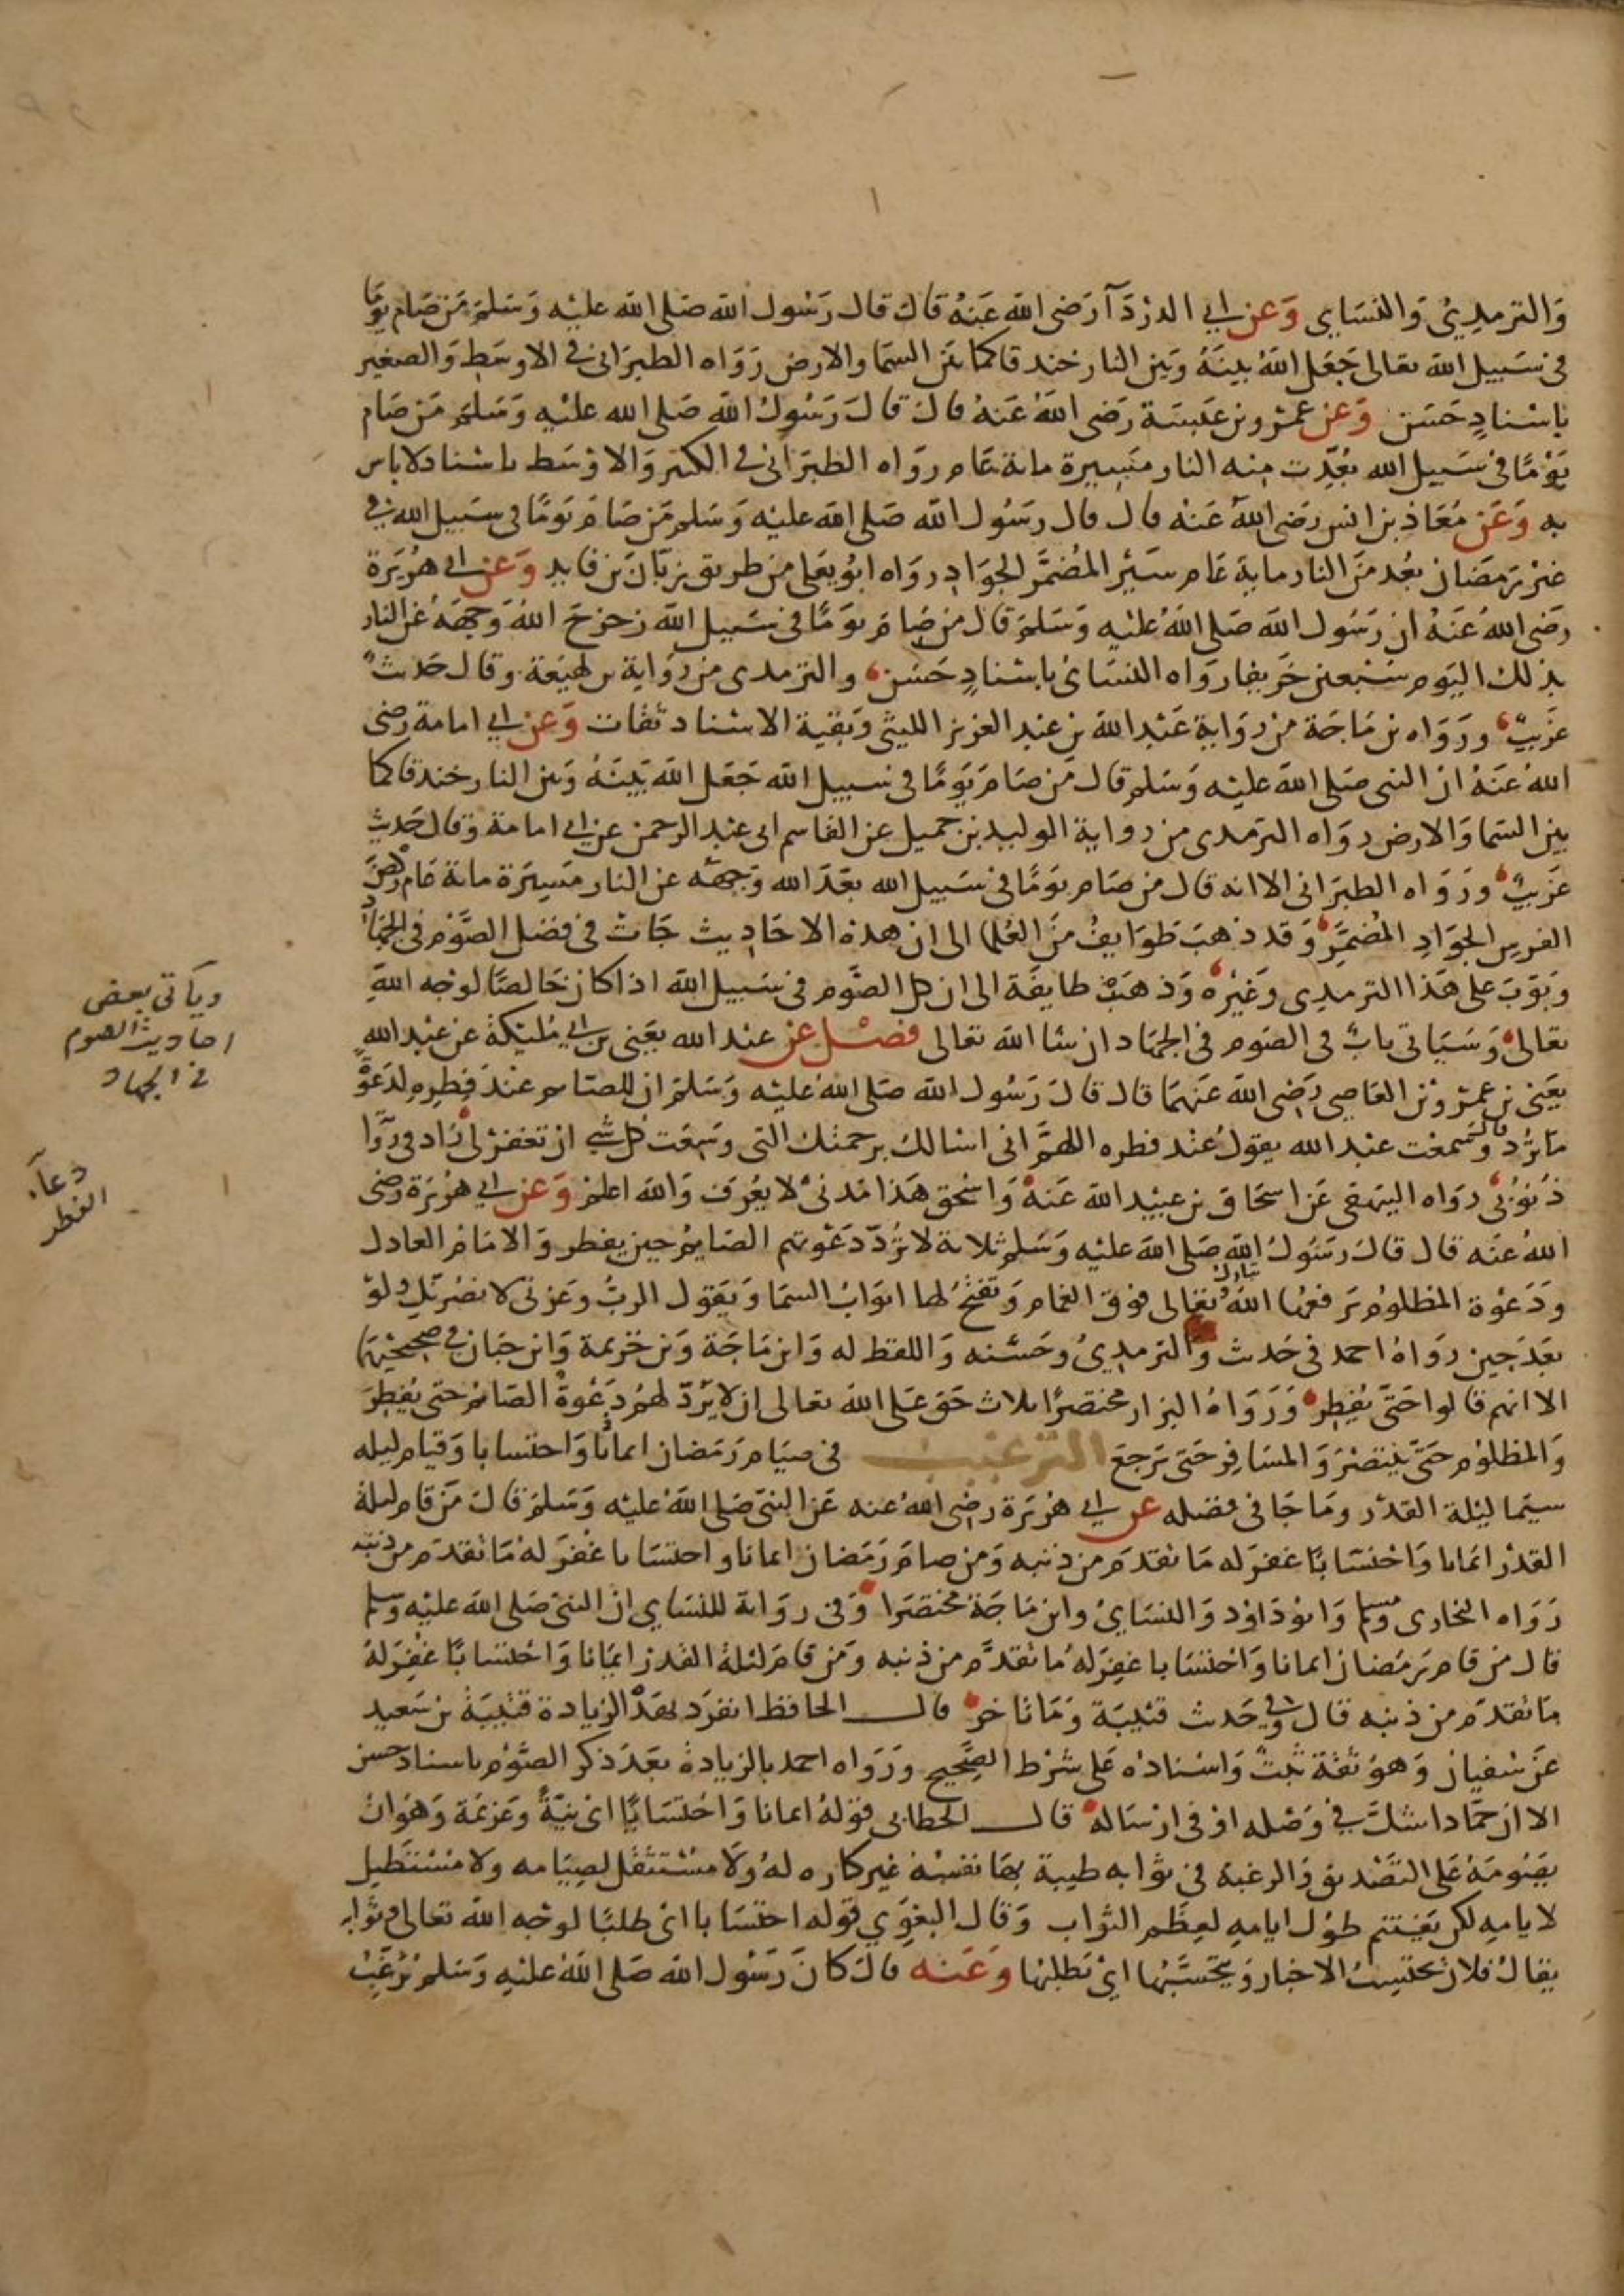 والترمذي والنساي وعن ابي الدردآ رضي الله عنه قال قال رسول الله صلى الله عليه وسلم من صام يوما
في سبيل الله تعالى جعل الله بينه وبين النار خندقا كما بين السما والارض رواه الطبراني في الاوسط والصغير
باسناد حسن وعن عمرو بن عبسة رضي الله عنه قال قال رسول الله صلى الله عليه وسلم من صام
يوما في سبيل الله بعدت منه النار مسيرة ماية عام رواه الطبراني في الكبير والاوسط باسناد لا باس
به وعن معاذ بن انس رضي الله عنه قال قال رسول الله صلى الله عليه وسلم من صام يوما في سبيل الله في
غير رمضان بعد من النار ماية عام سير المضمر الجواد رواه ابو يعلى من طريق زبان بن فايد وعن ابي هريرة
رضي الله عنه ان رسول الله صلى الله عليه وسلم قال من صام يوما في سبيل الله زحزح الله وجهه عن النار
بذلك اليوم سبعين خريفا رواه النساي باسناد حسن والترمدى من رواية بن لهيعة وقال حديث
غريب ورواه بن ماجة من رواية عبد الله بن عبد العزيز الليثي وبقية الاسناد ثقات وعن ابي امامة رضي
الله عنه ان النبي صلى الله عليه وسلم قال من صام يوما في سبيل الله جعل الله بينه وبين النار خندقا كما
بين السما والارض رواه الترمدى من رواية الوليد بن جميل عن القاسم ابي عبد الرحمن عن ابي امامة وقال حديث
غريب ورواه الطبراني الا انه قال من صام يوما في سبيل الله بعد الله وجهه عن النار مسيرة ماية عام ركض
الفرس الجواد المضمر وقد ذهب طوايف من العلما الى ان هذه الاحاديث جات في فضل الصوم في الجهاد
وبوب على هذا الترمدي وغيره وذهبت طايفة الى ان كل الصوم في سبيل الله اذا كان خالصا لوجه الله
تعالى وسياتي باب في الصوم في الجهاد ان شا الله تعالى فصل عن عبد الله يعني بن ابي مليكة عن عبد الله
يعني بن عمرو بن العاصي رضي الله عنهما قال قال رسول الله صلى الله عليه وسلم ان للصائم عند فطره لدعوة
ما ترد قال وسمعت عبد الله يقول عند فطره اللهم اني اسالك برحمتك التي وسعت كل شي ان تغفر لي زاد في روا
ذنوبي رواه البيهقي عن اسحاق بن عبيد الله عنه واسحق هذا مدني لا يعرف والله اعلم وعن ابي هريرة رضي
الله عنه قال قال رسول الله صلى الله عليه وسلم ثلاثة لا ترد دعوتهم الصايم حين يفطر والامام العادل
ودعوة المظلوم يرفعها الله تبارك وتعالى فوق الغمام وتفتح لها ابواب السما ويقول الرب وعزتي لانصرنك ولو
بعد حين رواه احمد في حديث والترمذي وحسنه واللفظ له وابن ماجة وبن خزيمة وابن حبان في صحيحيهما
الا انهم قالوا حتى يفطر ورواه البزار مختصرا ثلاث حق على الله تعالى ان لا يرد لهم دعوة الصائم حتى يفطر
والمظلوم حتى ينتصر والمسافر حتى يرجع الترغيب في صيام رمضان ايمانا واحتسابا وقيام ليله
سيما ليلة القدر وما جا في فضله عن ابي هريرة رضي الله عنه عن النبي صلى الله عليه وسلم قال من قام ليلة
القدر ايمانا واحتسابا غفر له ما تقدم من ذنبه ومن صام رمضان ايمانا واحتسابا غفر له ما تقدم من ذنبه
رواه البخارى ومسلم وابو داود والنساي وابن ماجة مختصرا وفي رواية للنساي ان النبي صلى الله عليه وسلم
قال من قام رمضان ايمانا واحتسابا غفر له ما تقدم من ذنبه ومن قام ليلة القدر ايمانا واحتسابا غفر له
ما تقدم من ذنبه قال وفي حديث قتيبة وما تاخر قال الحافظ انفرد بهذه الزيادة قتيبة بن سعيد
عن سفيان وهو ثقة ثبت واسناده على شرط الصحيح ورواه احمد بالزيادة بعد ذكر الصوم باسناد حسن
الا ان حمادا شك في وصله او في ارساله قال الخطابي قوله ايمانا واحتسابا اي نية وعزيمة وهو ان
يصومه على التصديق والرغبة في ثوابه طيبة بها نفسه غير كاره له ولا مستثقل لصيامه ولا مستطيل
لايامه لكن يغتنم طول ايامه لعظم الثواب وقال البغوي قوله احتسابا اي طلبا لوجه الله تعالى وثوابه
يقال فلان يحتسب الاخبار ويتحسبها اي يطلبها وعنه قال كان رسول الله صلى الله عليه وسلم يرغب
وياتي بعض
احاديث الصوم
في الجهاد
دعآء
الفطر